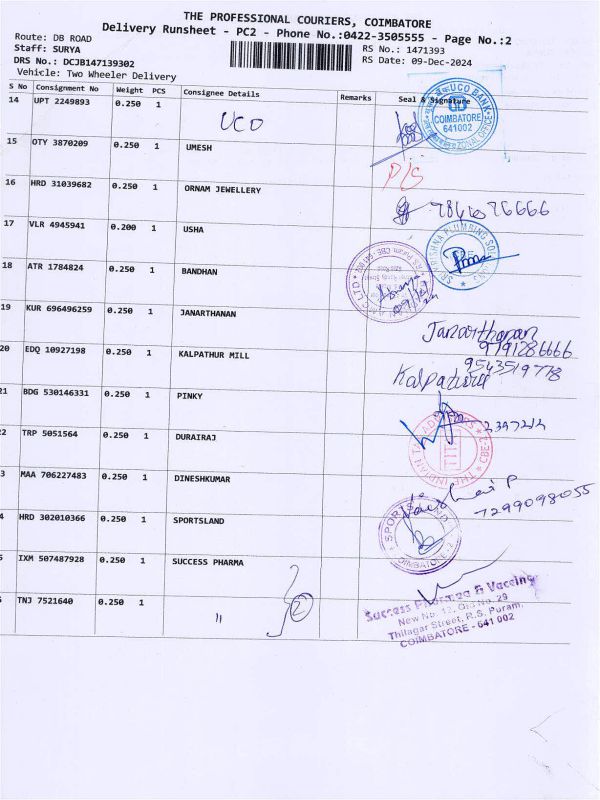 THE PROFESSIONAL COURIERS, COIMBATORE
Delivery Runsheet - PC2 - Phone No.:0422-3505555 - Page No.:2
Route: DB ROAD
RS No.: 1471393
Staff: SURYA
RS Date: 09-Dec-2024
DRS No.: DCJB147139302
Vehicle: Two Wheeler Delivery
S No Consignment No Weight PCS Consignee Details Remarks Seal & Signature
14 UPT 2249893 0.250 1 UCO
UCO BANK
COIMBATORE
641002
ZONAL OFFICE
15 OTY 3870209 0.250 1 UMESH
P/S
16 HRD 31039682 0.250 1 ORNAM JEWELLERY
17 VLR 4945941 0.200 1 USHA
SRI KRISHNA PLUMBING SOLUTIONS
18 ATR 1784824 0.250 1 BANDHAN
19 KUR 696496259 0.250 1 JANARTHANAN
Janarthanan
9791286666
20 EDQ 10927198 0.250 1 KALPATHUR MILL
9543519778
21 BDG 530146331 0.250 1 PINKY
22 TRP 5051564 0.250 1 DURAIRAJ
THE INDIAN
3 MAA 706227483 0.250 1 DINESHKUMAR
7299098055
4 HRD 302010366 0.250 1 SPORTSLAND
SPORTSLAND
COIMBATORE
5 IXM 507487928 0.250 1 SUCCESS PHARMA
TNJ 7521640 0.250 1 " 2
Success Pharma & Vaccine
New No. 12, Old No. 29
Thilagar Street, R.S. Puram,
COIMBATORE - 641 002